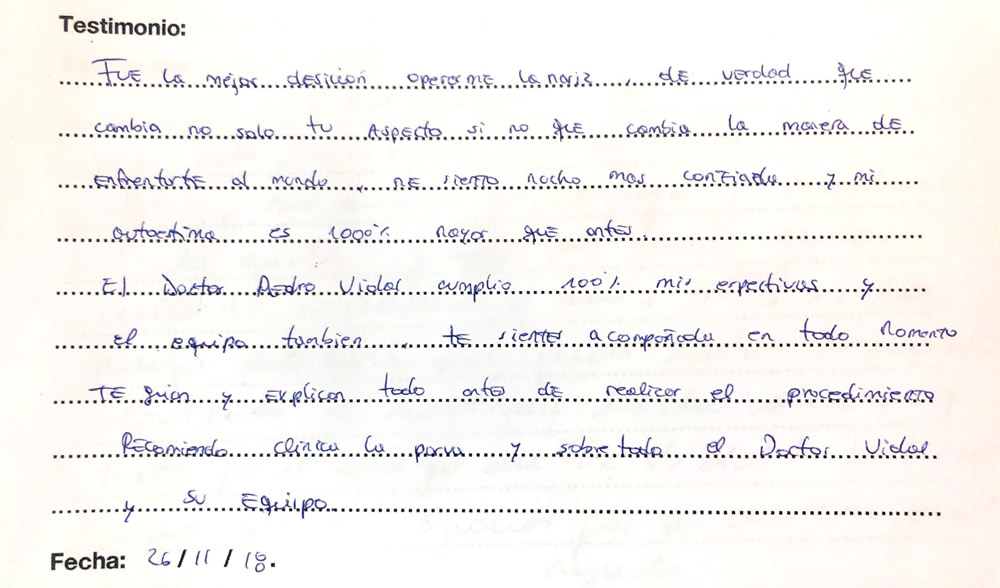 Testimonio:
Fue la mejor desición operarme la nariz, de verdad que
cambia no solo tu aspecto si no que cambia la manera de
enfrentarte al mundo, me siento mucho mas confiada y mi
autoestima es 1000% mayor que antes
El Doctor Pedro Vidal cumplio 100% mis expectivas y
el equipo tambien, te sientes acompañada en todo momento
Te guian y explican todo antes de realizar el procedimiento
Recomiendo clinica la parva y sobre todo el Doctor Vidal
y su Equipo.
Fecha: 26/11/18.